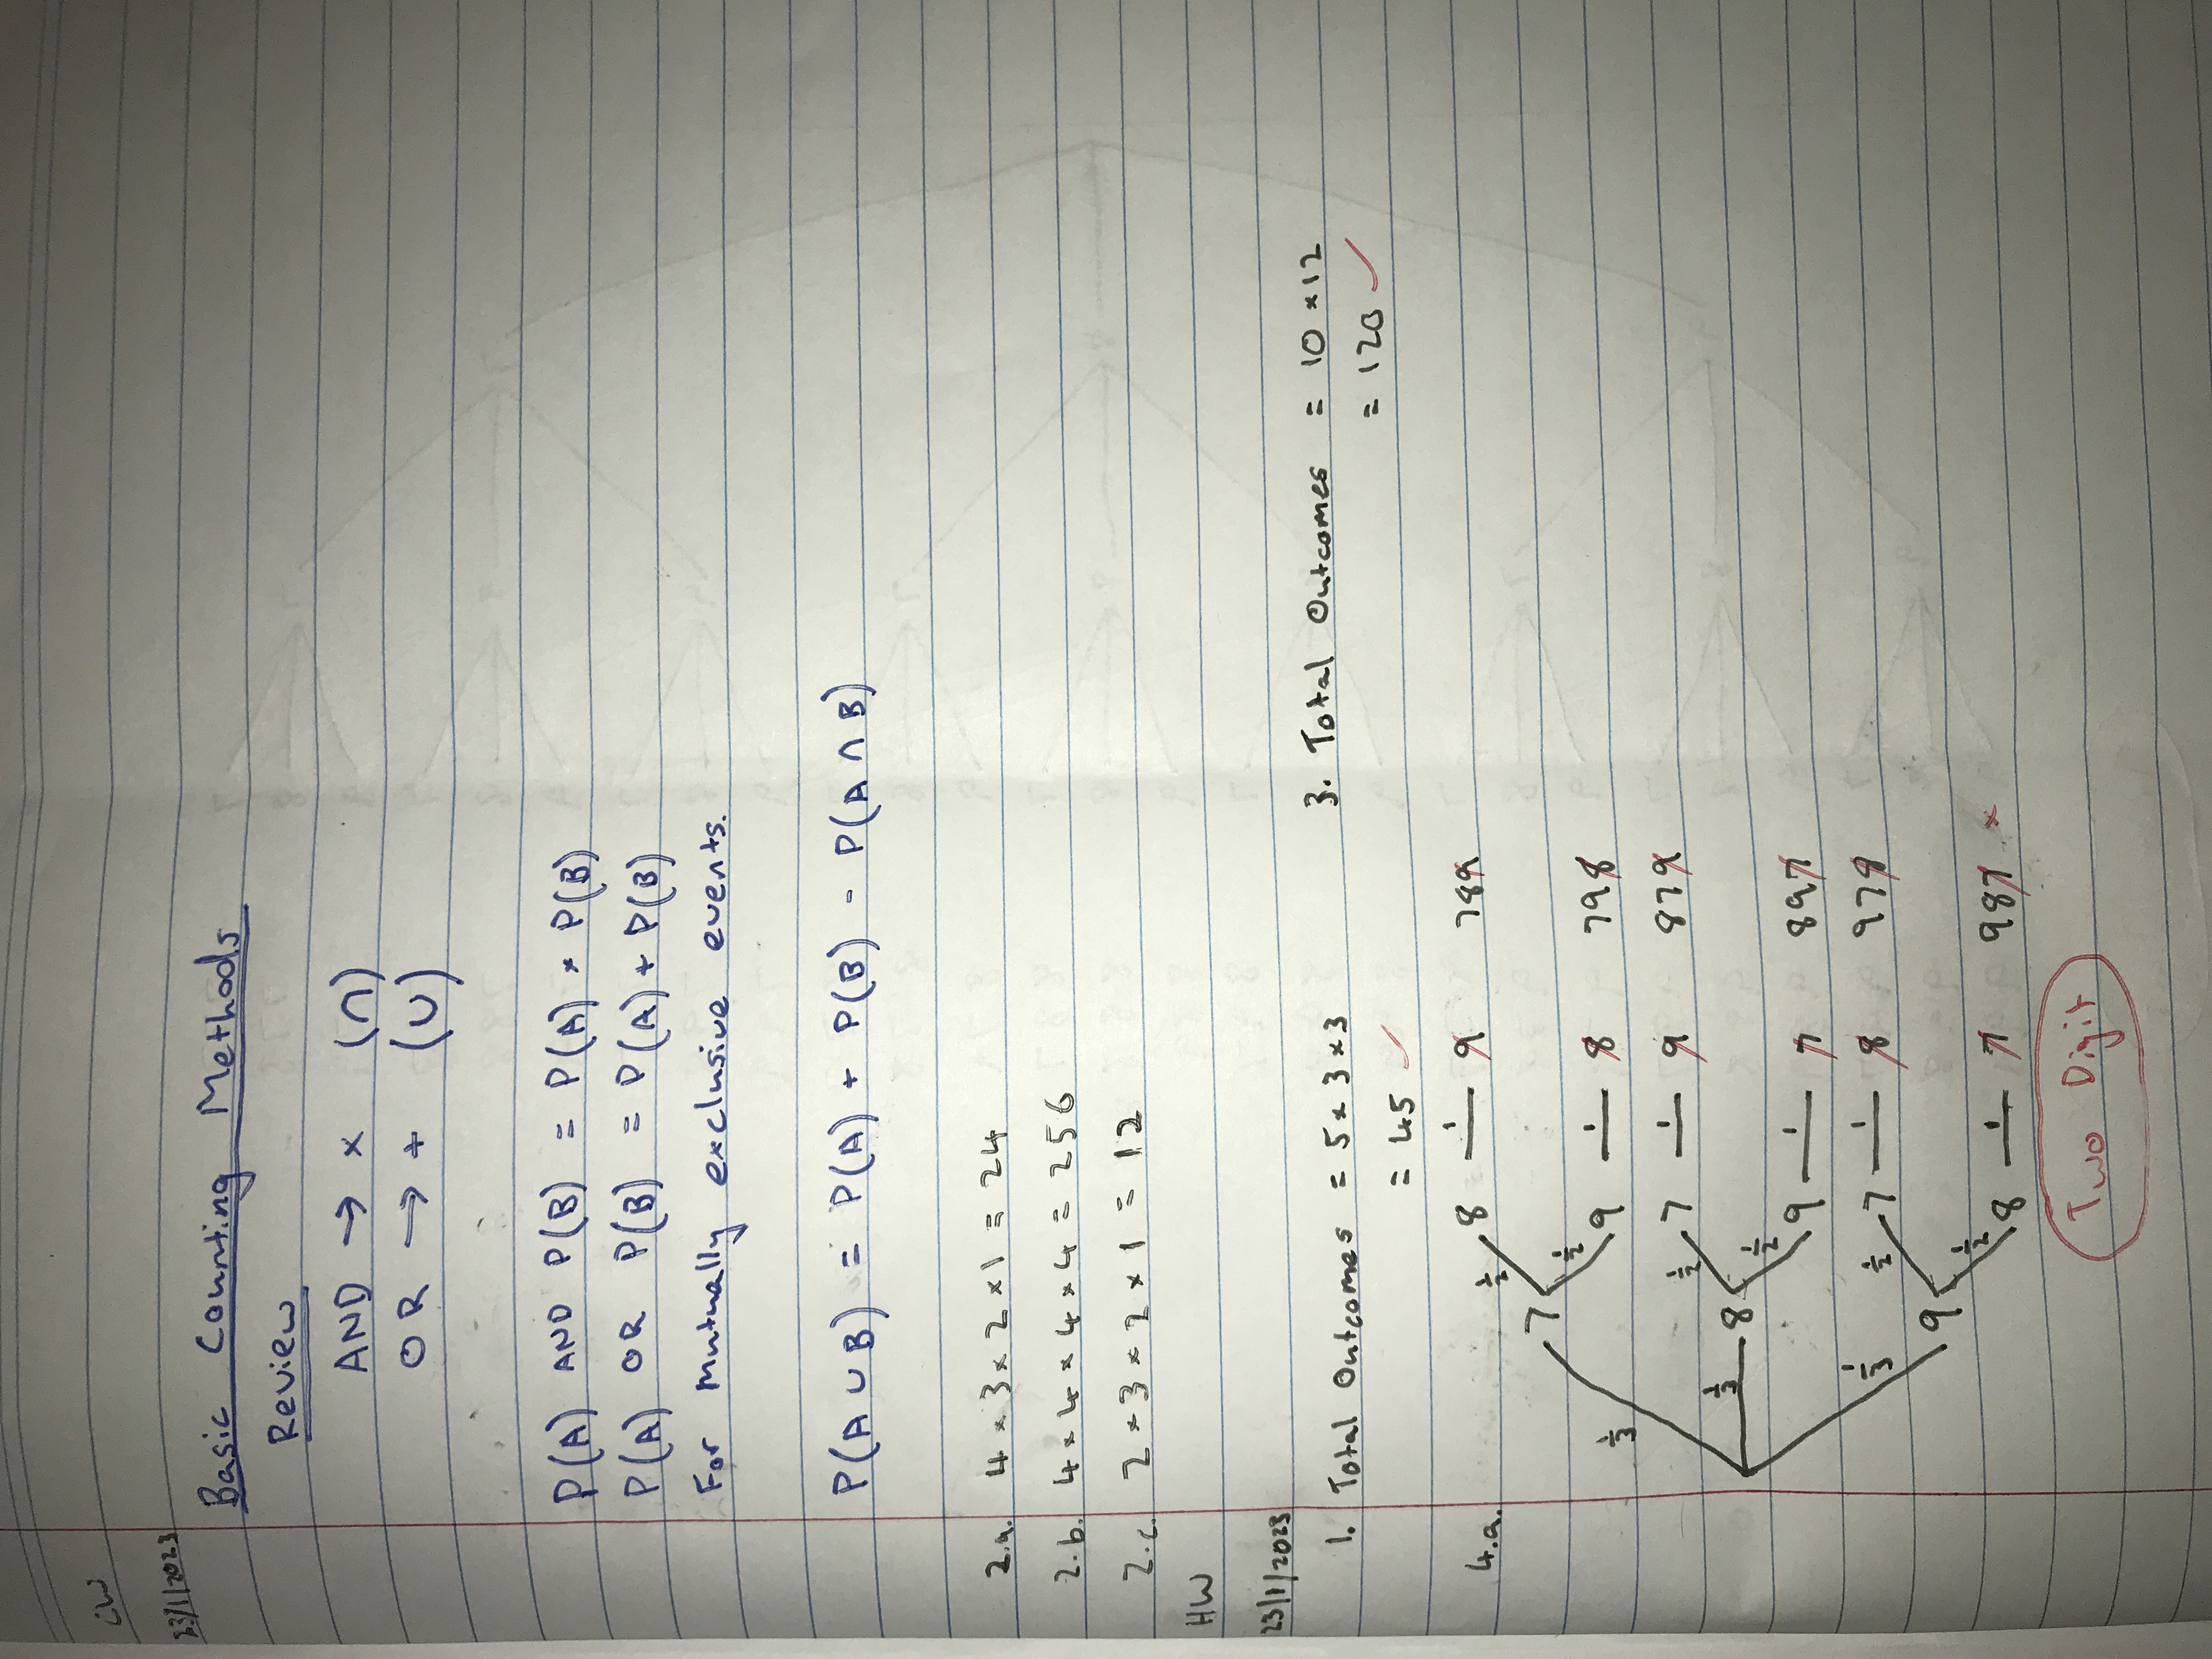 CW
23/1/2023
Basic Counting Methods
Review
AND → × (∩)
OR → + (∪)
P(A) AND P(B) = P(A) × P(B)
P(A) OR P(B) = P(A) + P(B)
For mutually exclusive events.
P(A ∪ B) = P(A) + P(B) - P(A ∩ B)
2.a. 4 × 3 × 2 × 1 = 24
2.b. 4 × 4 × 4 × 4 = 256
2.c. 2 × 3 × 2 × 1 = 12
HW
23/1/2023
1. Total Outcomes = 5 × 3 × 3
= 45 ✓
3. Total Outcomes = 10 × 12
= 120 ✓
4.a.
1/2 8 1 9 789
1/3 7
1/2 9 1 8 798
1/2 7 1 9 879
1/3 8
1/2 9 1 7 897
1/2 7 1 8 978
1/3 9
1/2 8 1 7 987 ×
Two Digit